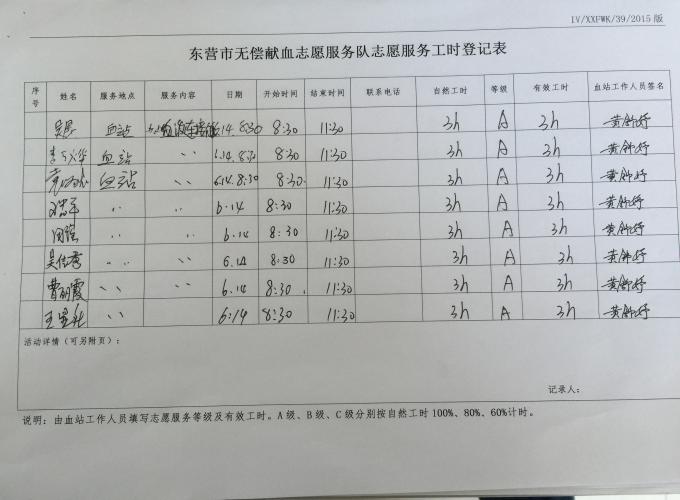 IV/XXFWK/39/2015 版
东营市无偿献血志愿服务队志愿服务工时登记表
序号 姓名 服务地点 服务内容 日期 开始时间 结束时间 联系电话 自然工时 等级 有效工时 血站工作人员签名
血站 6.14. 8:30 8:30 11:30 3h A 3h
血站 、、 6.14. 8:30 8:30 11:30 3h A 3h
血站 、、 6.14. 8:30 8:30 11:30 3h A 3h
、、 、、 6.14 8:30 11:30 3h A 3h
、、 、、 6.14 8:30 11:30 3h A 3h
、、 、、 6.14 8:30 11:30 3h A 3h
曹丽霞 、、 、、 6.14 8:30 11:30 3h A 3h
、、 6.14 8:30 11:30 3h A 3h
活动详情（可另附页）：
记录人：
说明：由血站工作人员填写志愿服务等级及有效工时。A 级、B 级、C 级分别按自然工时 100%、80%、60%计时。